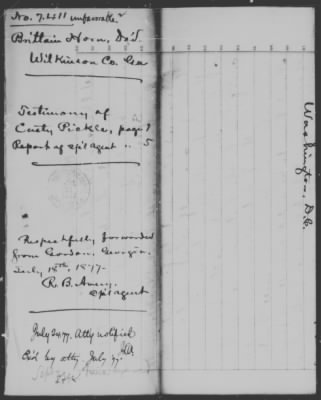 No. 7.411 unfavorable
Brittain Horn, Dec'd
Wilkinson Co. Ga
Testimony of
Custy Pickle, page 7
Report of spl agent " 5
Respectfully forwarded
from Gordon, Georgia,
July 18th, 1877-
R. B. Avery,
spl agent
July 24.77. Atty notified
by atty, July
Washington, D.C.